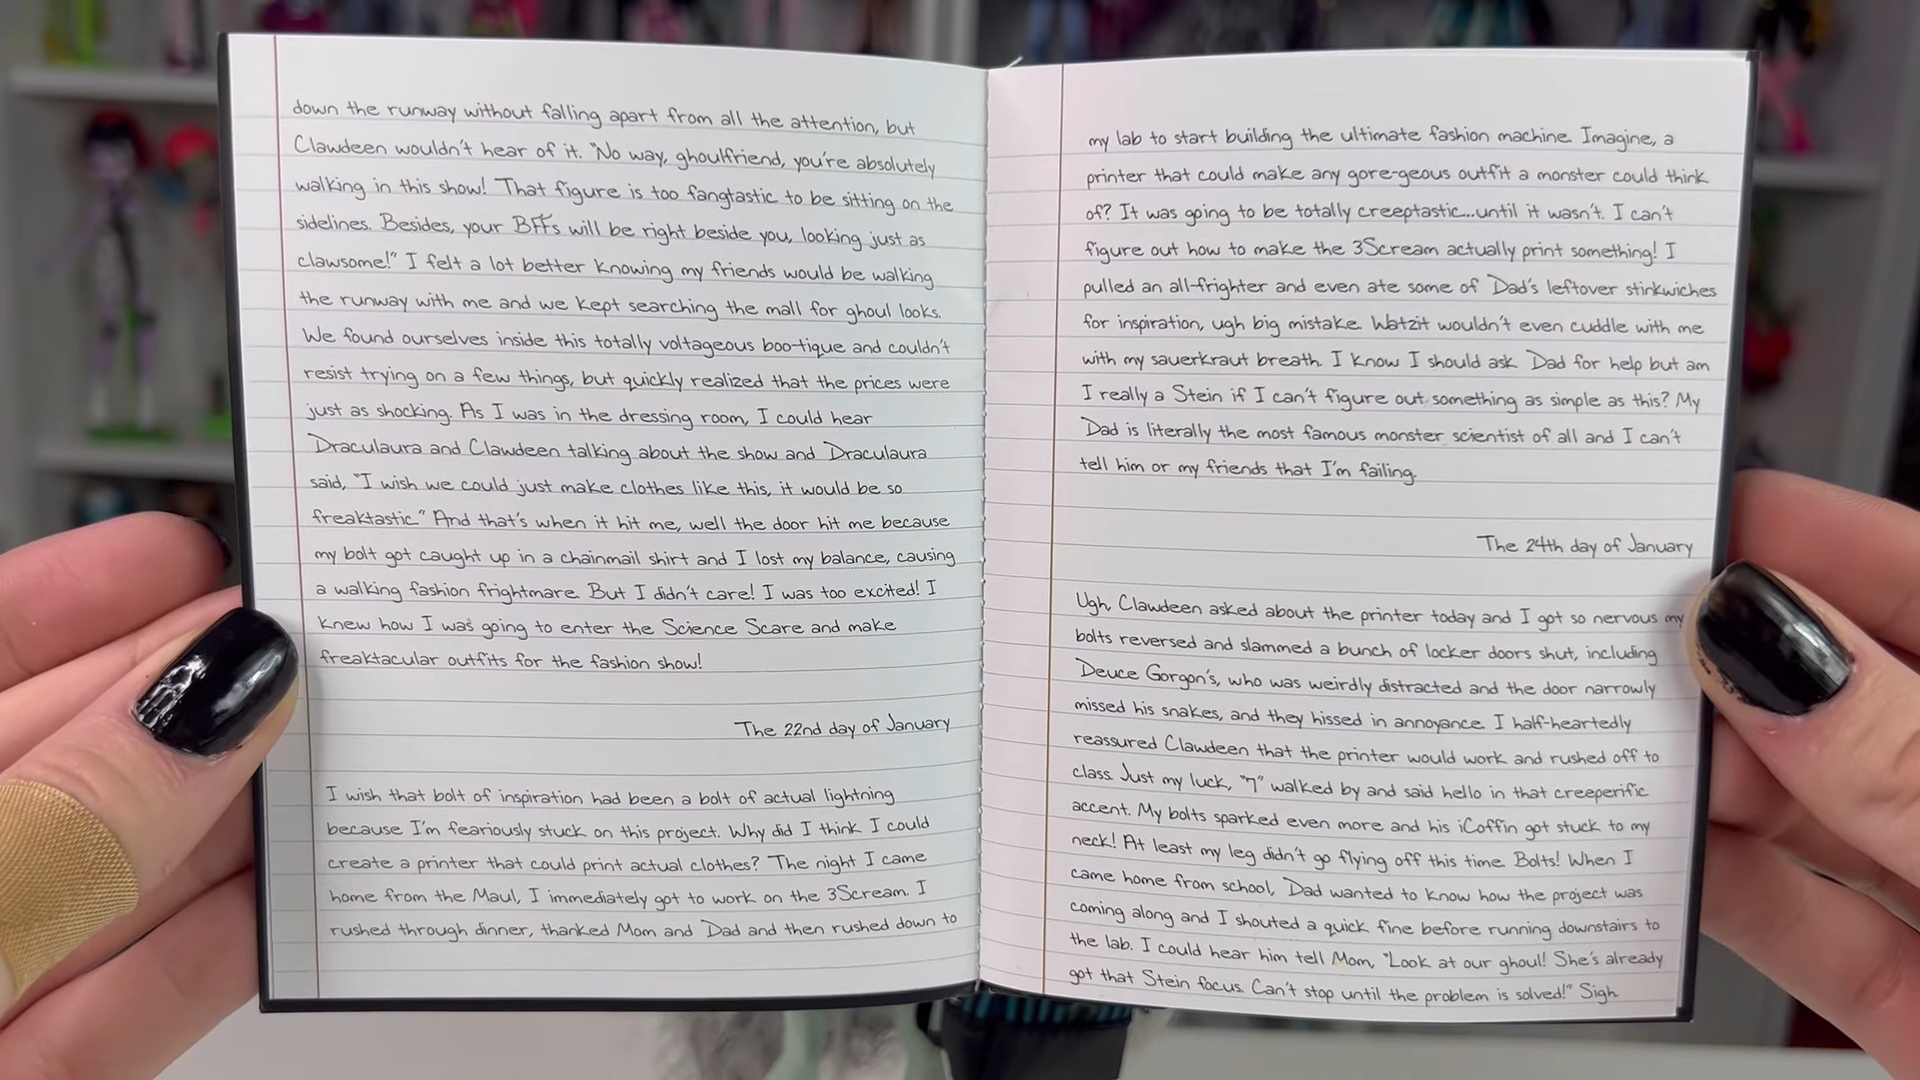 down the runway without falling apart from all the attention, but
Clawdeen wouldn't hear of it. "No way, ghoulfriend, you're absolutely
walking in this show! That figure is too fangtastic to be sitting on the
sidelines. Besides, your BFFs will be right beside you, looking just as
clawsome!" I felt a lot better knowing my friends would be walking
the runway with me and we kept searching the mall for ghoul looks.
We found ourselves inside this totally voltageous boo-tique and couldn't
resist trying on a few things, but quickly realized that the prices were
just as shocking. As I was in the dressing room, I could hear
Draculaura and Clawdeen talking about the show and Draculaura
said, "I wish we could just make clothes like this, it would be so
freaktastic." And that's when it hit me, well the door hit me because
my bolt got caught up in a chainmail shirt and I lost my balance, causing
a walking fashion frightmare. But I didn't care! I was too excited! I
knew how I was going to enter the Science Scare and make
freaktacular outfits for the fashion show!
The 22nd day of January
I wish that bolt of inspiration had been a bolt of actual lightning
because I'm feariously stuck on this project. Why did I think I could
create a printer that could print actual clothes? The night I came
home from the Maul, I immediately got to work on the 3Scream. I
rushed through dinner, thanked Mom and Dad and then rushed down to
my lab to start building the ultimate fashion machine. Imagine, a
printer that could make any gore-geous outfit a monster could think
of? It was going to be totally creeptastic...until it wasn't. I can't
figure out how to make the 3Scream actually print something! I
pulled an all-frighter and even ate some of Dad's leftover stinkwiches
for inspiration, ugh big mistake. Watzit wouldn't even cuddle with me
with my sauerkraut breath. I know I should ask Dad for help but am
I really a Stein if I can't figure out something as simple as this? My
Dad is literally the most famous monster scientist of all and I can't
tell him or my friends that I'm failing.
The 24th day of January
Ugh, Clawdeen asked about the printer today and I got so nervous my
bolts reversed and slammed a bunch of locker doors shut, including
Deuce Gorgon's, who was weirdly distracted and the door narrowly
missed his snakes, and they hissed in annoyance. I half-heartedly
reassured Clawdeen that the printer would work and rushed off to
class. Just my luck, "7" walked by and said hello in that creeperific
accent. My bolts sparked even more and his iCoffin got stuck to my
neck! At least my leg didn't go flying off this time. Bolts! When I
came home from school, Dad wanted to know how the project was
coming along and I shouted a quick fine before running downstairs to
the lab. I could hear him tell Mom, "Look at our ghoul! She's already
got that Stein focus. Can't stop until the problem is solved!" Sigh.